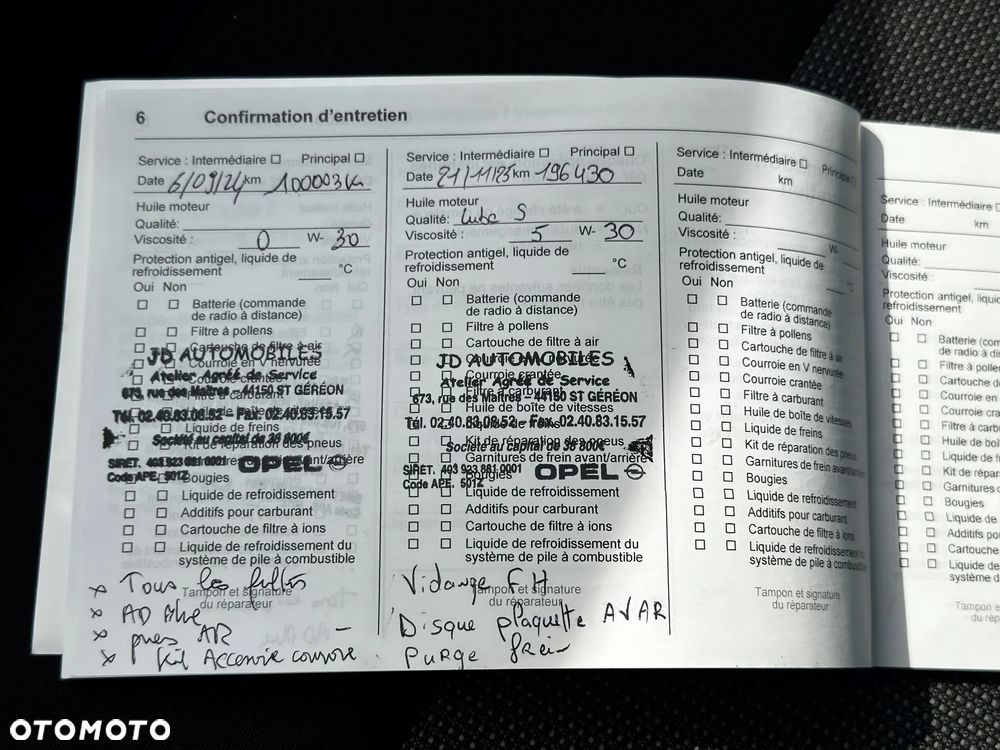 6 Confirmation d'entretien
Service : Intermédiaire □ Principal □
Date 6/09/24 km 100003 km
Huile moteur
Qualité:
Viscosité : 0 W- 30
Protection antigel, liquide de
refroidissement °C
Oui Non
□ □ Batterie (commande
de radio à distance)
□ □ Filtre à pollens
□ □ Cartouche de filtre à air
Courroie en V nervurée
Courroie crantée
Filtre à carburant
Liquide de freins
Kit de réparation des pneus
Bougies
□ □ Liquide de refroidissement
□ □ Additifs pour carburant
□ □ Cartouche de filtre à ions
□ □ Liquide de refroidissement du
système de pile à combustible
Tampon et signature
du réparateur
JD AUTOMOBILES
Atelier Agréé de Service
673, rue des Maîtres - 44150 ST GÉRÉON
Tél. 02.40.83.08.52 - Fax 02.40.83.15.57
Société au capital de 38 800€
SIRET. 403 923 881 0001
Code APE. 501Z
OPEL
x Tous les filtres
x AD Blue
x pneus AR
x Kit Accessoire courroie
Service : Intermédiaire □ Principal □
Date 21/11/25 km 196430
Huile moteur
Qualité: Lubo S
Viscosité : 5 W- 30
Protection antigel, liquide de
refroidissement °C
Oui Non
□ □ Batterie (commande
de radio à distance)
□ □ Filtre à pollens
□ □ Cartouche de filtre à air
□ □ Courroie en V nervurée
□ □ Courroie crantée
□ □ Filtre à carburant
□ □ Huile de boîte de vitesses
□ □ Liquide de freins
□ □ Kit de réparation des pneus
□ □ Garnitures de frein avant/arrière
□ □ Bougies
□ □ Liquide de refroidissement
□ □ Additifs pour carburant
□ □ Cartouche de filtre à ions
□ □ Liquide de refroidissement du
système de pile à combustible
Tampon et signature
du réparateur
JD AUTOMOBILES
Atelier Agréé de Service
673, rue des Maîtres - 44150 ST GÉRÉON
Tél. 02.40.83.08.52 - Fax 02.40.83.15.57
Société au capital de 38 800€
SIRET. 403 923 881 0001
Code APE. 501Z
OPEL
Vidange FH
Disque plaquette AV AR
purge frein
Service : Intermédiaire □ Principal □
Date km
Huile moteur
Qualité:
Viscosité : W-
Protection antigel, liquide de
refroidissement °C
Oui Non
□ □ Batterie (commande
de radio à distance)
□ □ Filtre à pollens
□ □ Cartouche de filtre à air
□ □ Courroie en V nervurée
□ □ Courroie crantée
□ □ Filtre à carburant
□ □ Huile de boîte de vitesses
□ □ Liquide de freins
□ □ Kit de réparation des pneus
□ □ Garnitures de frein avant/arrière
□ □ Bougies
□ □ Liquide de refroidissement
□ □ Additifs pour carburant
□ □ Cartouche de filtre à ions
□ □ Liquide de refroidissement du
système de pile à combustible
Tampon et signature
du réparateur
Service : Intermédiaire □
Date km
Huile moteur
Qualité:
Viscosité :
Protection antigel, liquide
refroidissement
Oui Non
□ □ Batterie (comm
de radio à dis
□ □ Filtre à pollens
□ □ Cartouche
□ □ Courroie en
□ □ Courroie cran
□ □ Filtre à carb
□ □ Huile de boî
□ □ Liquide de f
□ □ Kit de répar
□ □ Garnitures d
□ □ Bougies
□ □ Liquide de
□ □ Additifs pou
□ □ Cartouche
□ □ Liquide de
système d
Tampon e
du rép
OTOMOTO